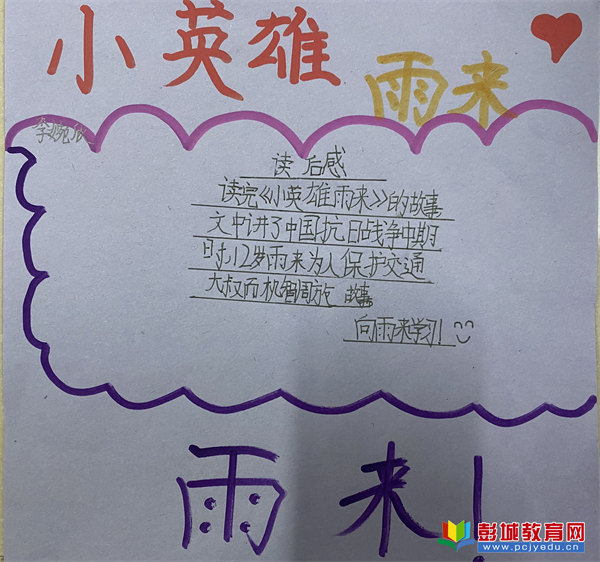 小英雄
雨来
李婉欣
读后感
读完《小英雄雨来》的故事
文中讲了中国抗日战争中期
时,12岁雨来为人保护交通
大叔而机智周旋 故事
向雨来学习!
雨来!
彭城教育网
www.pcjyedu.cn